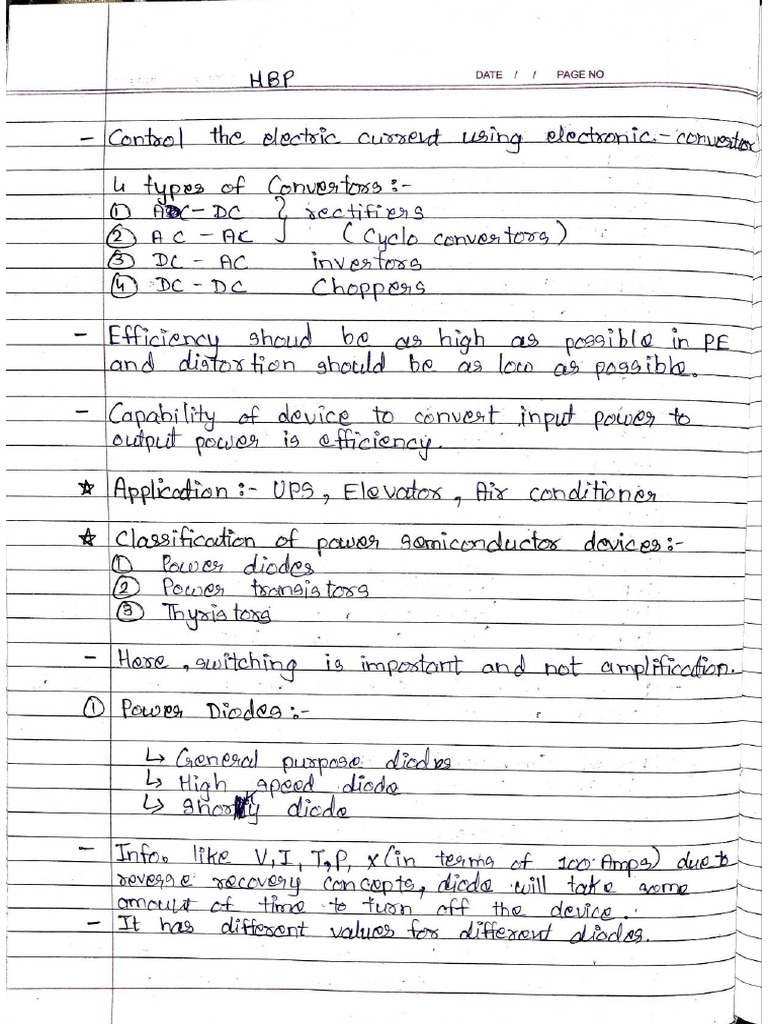 HBP
DATE / / PAGE NO
- Control the electric current using electronic - convertor
4 types of Convertors :-
① AC - DC } rectifiers
② AC - AC (Cyclo convertors)
③ DC - AC invertors
④ DC - DC Choppers
- Efficiency shoud be as high as possible in PE
and distortion should be as low as possible.
- Capability of device to convert input power to
output power is efficiency.
☆ Application :- UPS, Elevator, Air conditioner
☆ Classification of power semiconductor devices :-
① Power diodes
② Power transistors
③ Thyristors
- Here, switching is important and not amplification.
① Power Diodes :-
↳ General purpose diodes
↳ High speed diode
↳ diode
- Info. like V, I, T, P, x (in terms of 100 Amps) due to
reverse recovery concepts, diode will take some
amount of time to turn off the device.
- It has different values for different diodes.